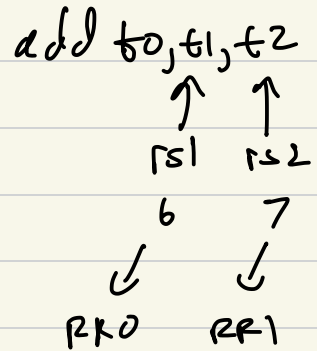 add t0,t1,t2
rs1 rs2
6 7
RR0 RR1